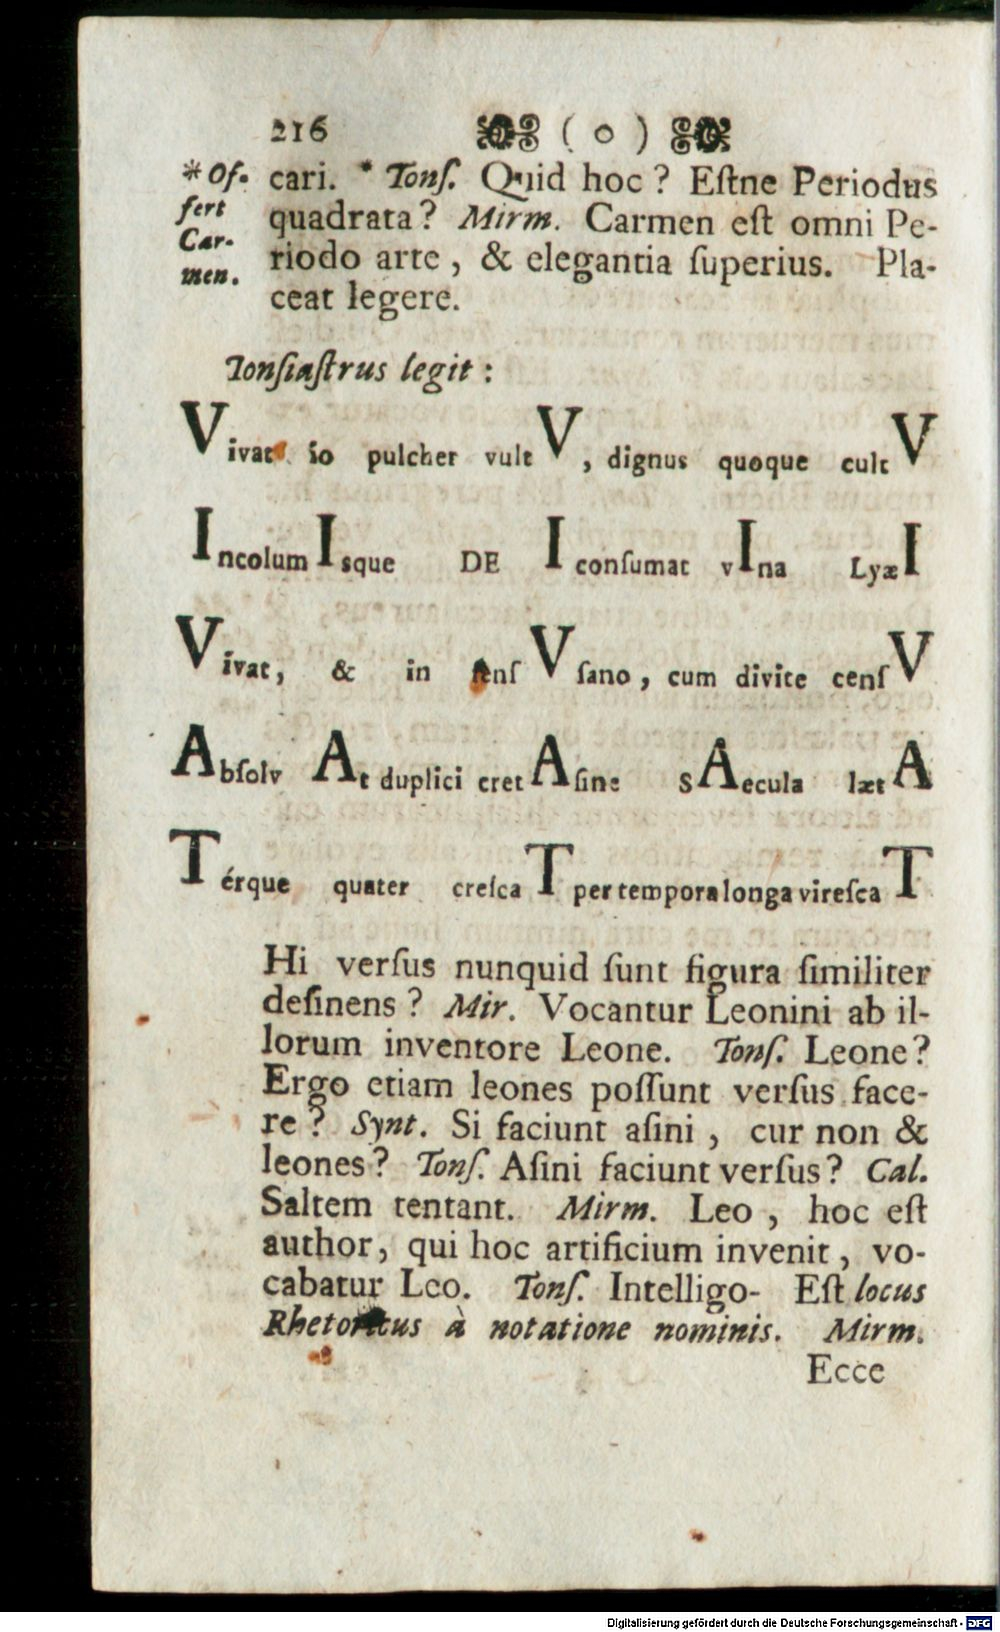 216 ( o )
* Of-
fert
Car-
men.
cari. * Tonſ. Quid hoc? Eſtne Periodus
quadrata? Mirm. Carmen eſt omni Pe-
riodo arte, & elegantia ſuperius. Pla-
ceat legere.
Tonſiaſtrus legit:
Vivat io pulcher vultV, dignus quoque cultV
IncolumIsque DE I conſumat vIna LyæI
Vivat, & in ſenſVſano, cum divite cenſV
Abſolv At duplici cretAſine sAecula lætA
Térque quater creſcaT per tempora longa vireſcaT
Hi verſus nunquid ſunt figura ſimiliter
deſinens? Mir. Vocantur Leonini ab il-
lorum inventore Leone. Tonſ. Leone?
Ergo etiam leones poſſunt verſus face-
re? Synt. Si faciunt aſini, cur non &
leones? Tonſ. Aſini faciunt verſus? Cal.
Saltem tentant. Mirm. Leo, hoc eſt
author, qui hoc artificium invenit, vo-
cabatur Leo. Tonſ. Intelligo- Eſt locus
Rhetoricus à notatione nominis. Mirm.
Ecce
Digitalisierung gefördert durch die Deutsche Forschungsgemeinschaft - DFG